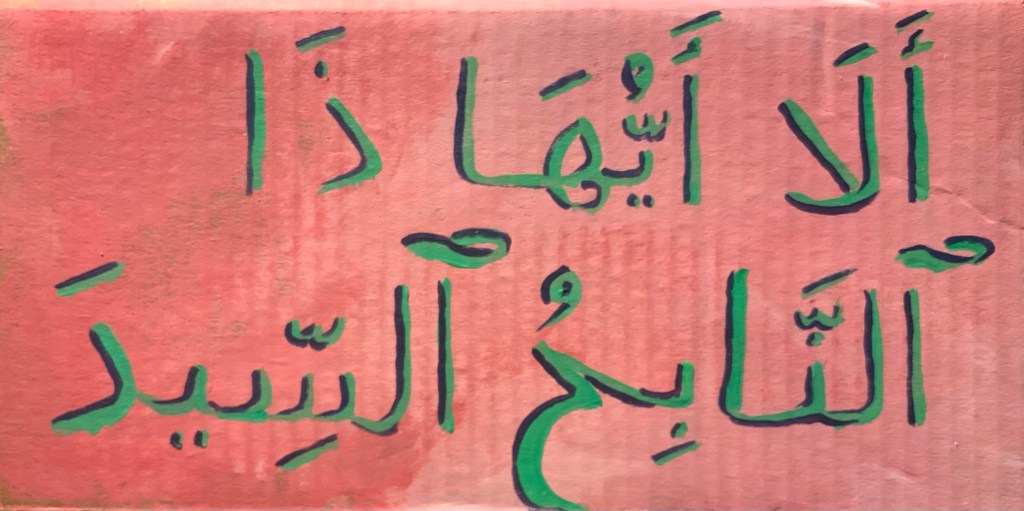 أَلَا أَيُّهَا ذَا
ٱلنَّابِحُ ٱلسِّيدَ